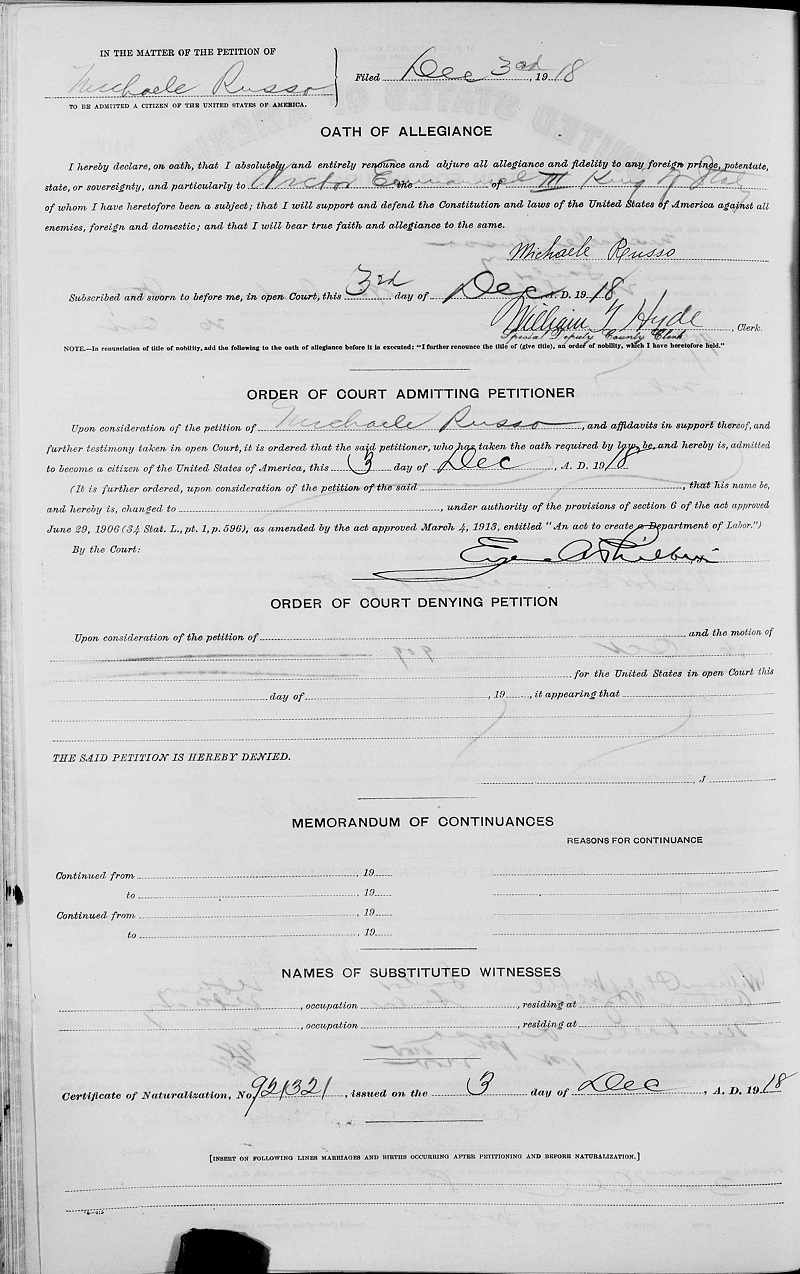 IN THE MATTER OF THE PETITION OF
Michaele Russo
TO BE ADMITTED A CITIZEN OF THE UNITED STATES OF AMERICA.
Filed Dec 3rd, 1918
OATH OF ALLEGIANCE
I hereby declare, on oath, that I absolutely and entirely renounce and abjure all allegiance and fidelity to any foreign prince, potentate,
state, or sovereignty, and particularly to Victor Emmanuel the III of King of Italy
of whom I have heretofore been a subject; that I will support and defend the Constitution and laws of the United States of America against all
enemies, foreign and domestic; and that I will bear true faith and allegiance to the same.
Michaele Russo
Subscribed and sworn to before me, in open Court, this 3rd day of Dec A. D. 1918
William F Hyde, Clerk.
Special Deputy County Clerk
NOTE.—In renunciation of title of nobility, add the following to the oath of allegiance before it is executed: "I further renounce the title of (give title), an order of nobility, which I have heretofore held."
ORDER OF COURT ADMITTING PETITIONER
Upon consideration of the petition of Michaele Russo, and affidavits in support thereof, and
further testimony taken in open Court, it is ordered that the said petitioner, who has taken the oath required by law, be, and hereby is, admitted
to become a citizen of the United States of America, this 3 day of Dec, A. D. 1918
(It is further ordered, upon consideration of the petition of the said , that his name be,
and hereby is, changed to , under authority of the provisions of section 6 of the act approved
June 29, 1906 (34 Stat. L., pt. 1, p. 596), as amended by the act approved March 4, 1913, entitled "An act to create a Department of Labor.")
By the Court:
ORDER OF COURT DENYING PETITION
Upon consideration of the petition of and the motion of
for the United States in open Court this
day of , 19 , it appearing that
THE SAID PETITION IS HEREBY DENIED.
, J
MEMORANDUM OF CONTINUANCES
REASONS FOR CONTINUANCE
Continued from , 19
to , 19
Continued from , 19
to , 19
NAMES OF SUBSTITUTED WITNESSES
, occupation , residing at
, occupation , residing at
Certificate of Naturalization, No. 921321, issued on the 3 day of Dec, A. D. 1918
[INSERT ON FOLLOWING LINES MARRIAGES AND BIRTHS OCCURRING AFTER PETITIONING AND BEFORE NATURALIZATION.]